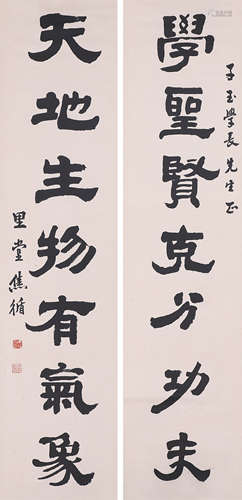 子玉學長先生正
學聖賢克分功夫
天地生物有氣象
里堂焦循